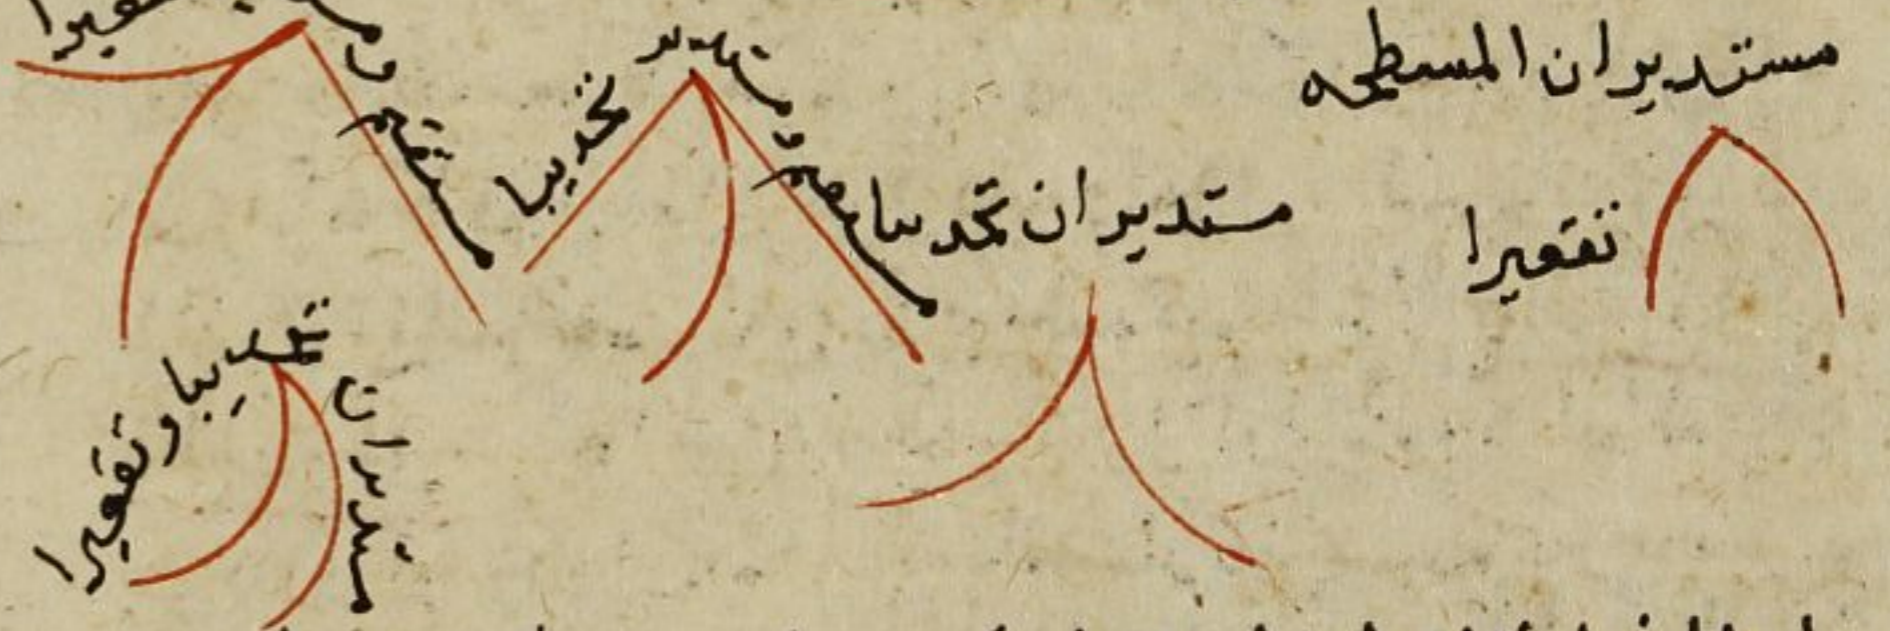 مستديران المسطحه
تقعيرا
مستديران تحديبا
مستقيم ومستدير
تحديبا
مستقيم و
تقعيرا
مستديران
تحديبا وتقعيرا